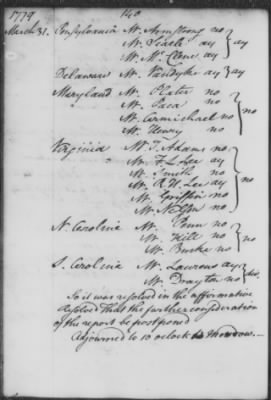 1779 140
March 31. Pensylvania Mr. Armstrong no
Mr. Searle ay } ay
Mr. Mc.Clene ay
Delaware Mr. Vandyke ay } ay
Maryland Mr. Plater no
Mr. Paca no } no
Mr. Carmichael no
Mr. Henry no
Virginia Mr. T. Adams no
Mr. F. L. Lee ay
Mr. Smith no } no
Mr. R. H. Lee ay
Mr. Griffin no
Mr. Nelson no
N. Carolina Mr. Penn no
Mr. Hill no } no
Mr. Burke no
S. Carolina Mr. Laurens ay
Mr. Drayton no } div.
So it was resolved in the affirmative
Resolved That the farther consideration
of the report be postponed
Adjourned to 10 oClock to Morrow.